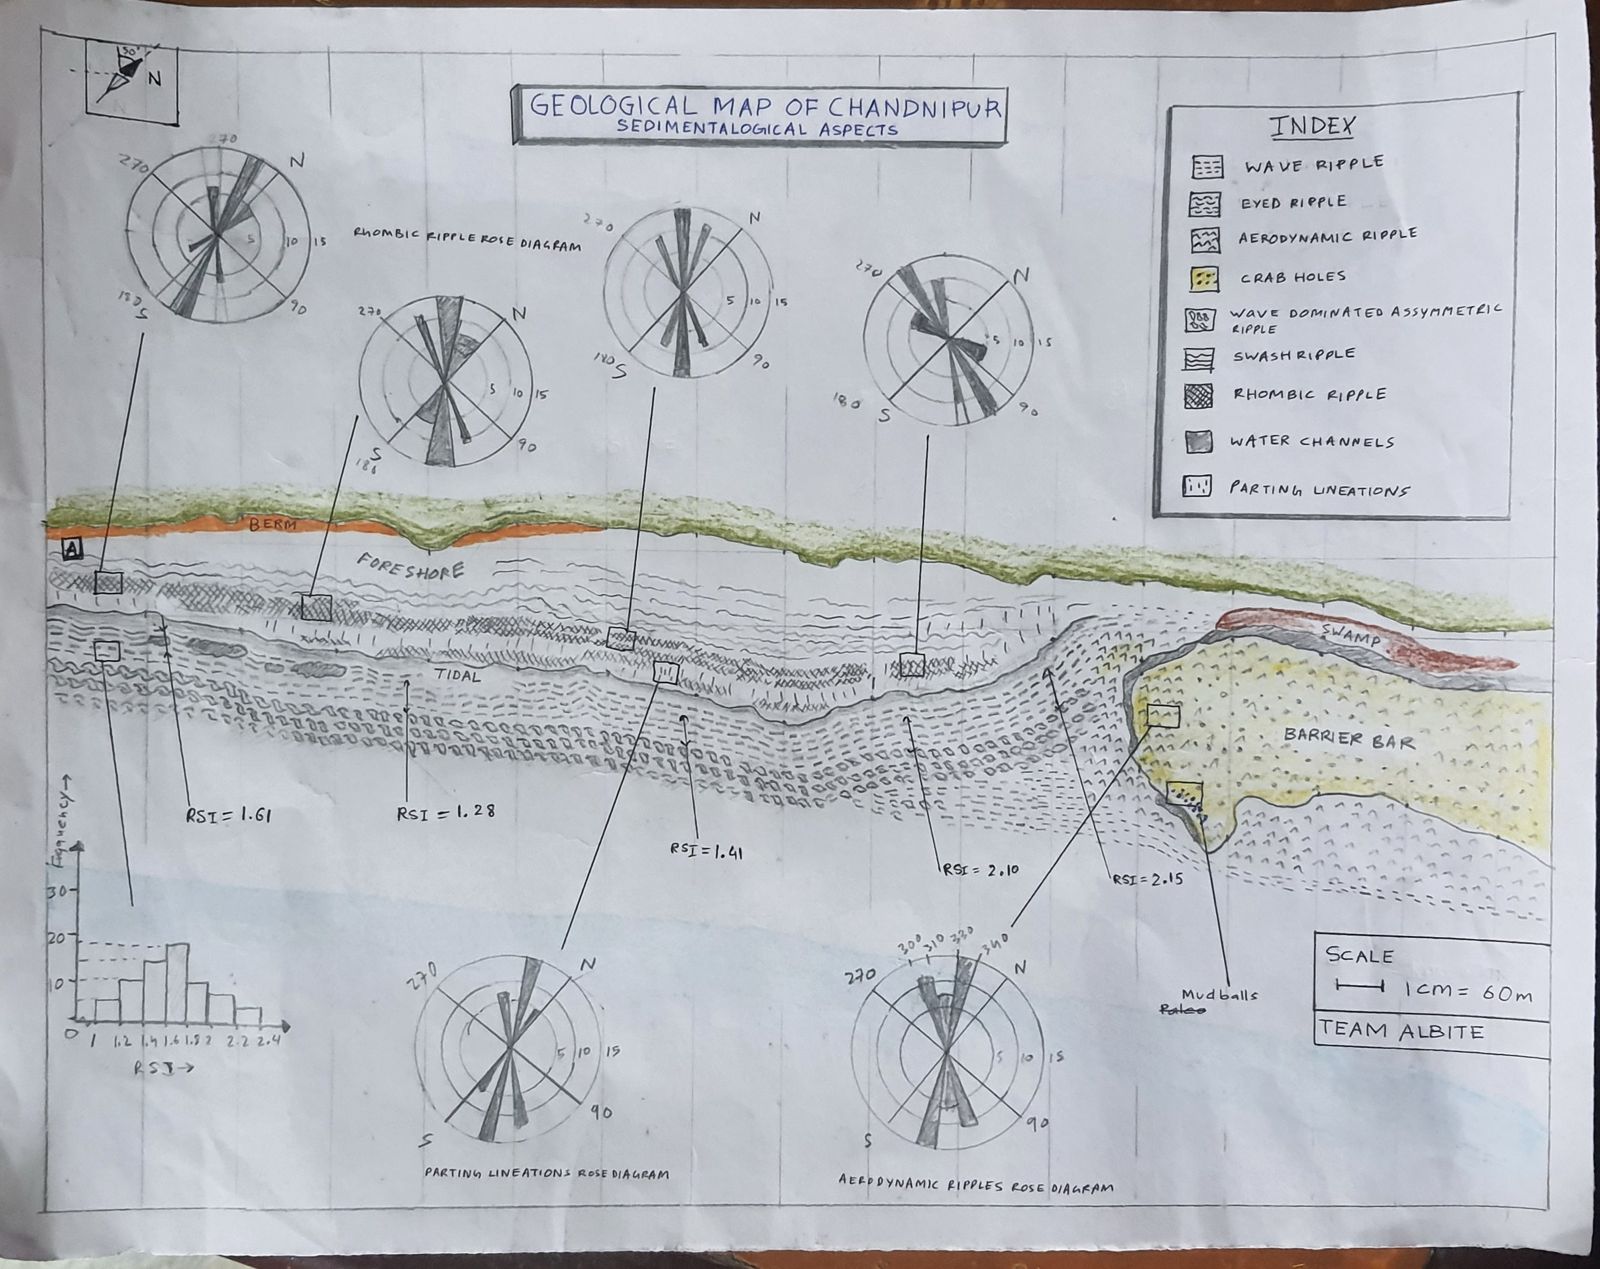 50°
N
GEOLOGICAL MAP OF CHANDNIPUR
SEDIMENTALOGICAL ASPECTS
INDEX
WAVE RIPPLE
EYED RIPPLE
AERODYNAMIC RIPPLE
CRAB HOLES
WAVE DOMINATED ASSYMETRIC
RIPPLE
SWASH RIPPLE
RHOMBIC RIPPLE
WATER CHANNELS
PARTING LINEATIONS
270
270 N
5 10 15
180 S 90
RHOMBIC RIPPLE ROSE DIAGRAM
270 N
5 10 15
S 90
180
270 N
5 10 15
180 S 90
270 N
5 10 15
180 S 90
BERM
A
FORESHORE
SWAMP
TIDAL
BARRIER BAR
RSI = 1.61
RSI = 1.28
RSI = 1.41
RSI = 2.10
RSI = 2.15
Frequency →
30
20
10
0 1 1.2 1.4 1.6 1.8 2 2.2 2.4
RSI →
270 N
5 10 15
S 90
PARTING LINEATIONS ROSE DIAGRAM
300 310 330 340
270 N
5 10 15
S 90
AERODYNAMIC RIPPLES ROSE DIAGRAM
Mudballs
SCALE
1cm = 60m
TEAM ALBITE